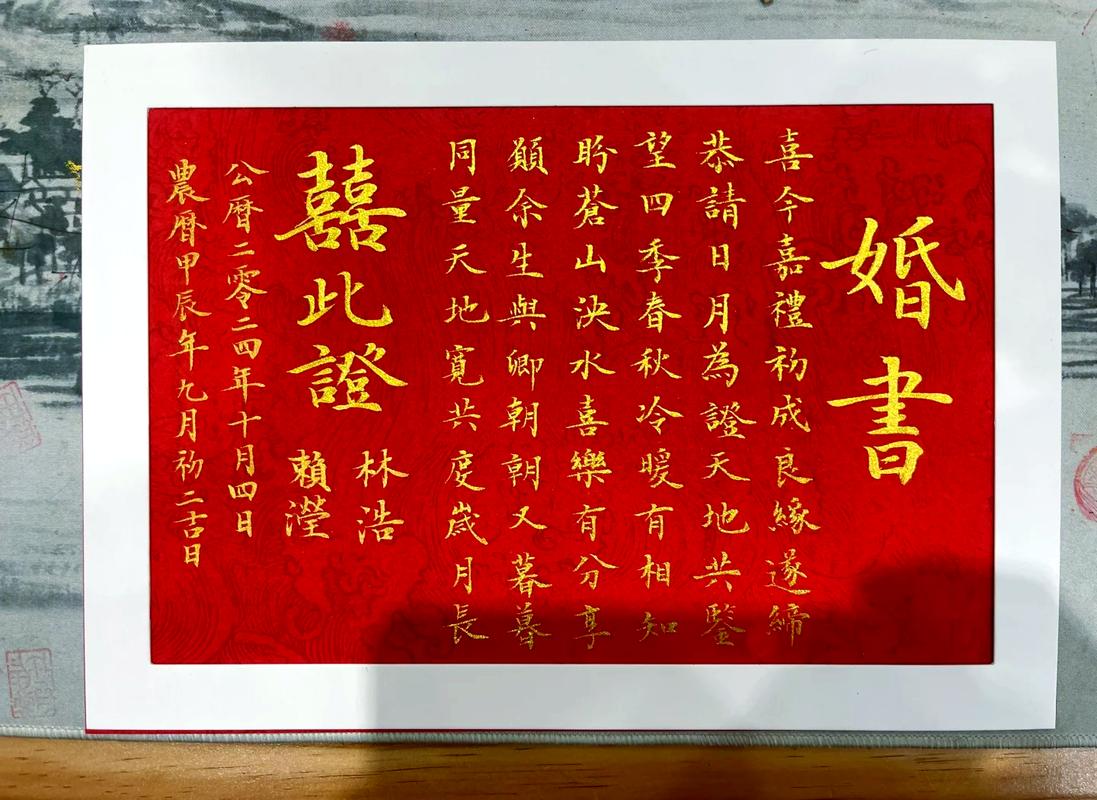 婚書
喜今嘉禮初成良緣遂締
恭請日月為證天地共鑒
望四季春秋冷暖有相知
盼蒼山泱水喜樂有分享
願余生與卿朝朝又暮暮
同量天地寬共度歲月長
囍此證
林浩
賴瀅
公曆二零二四年十月四日
農曆甲辰年九月初二吉日